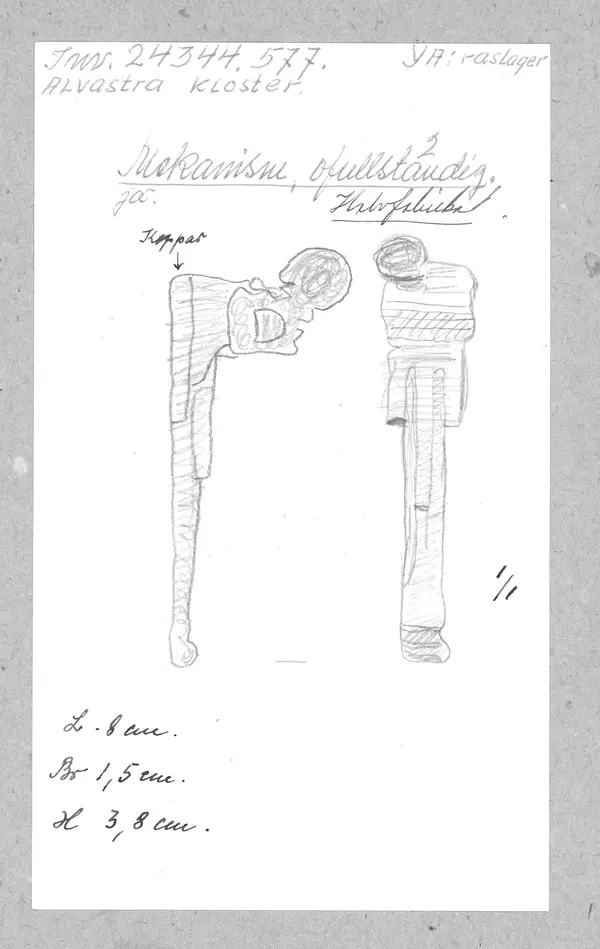 Inv. 24344. 577. YA: raslager
Alvastra kloster.
2
Mekanism, ofullständig.
ja. Halvfabrikat.
Koppar
1/1
L. 8 cm.
Br 1,5 cm.
H 3,8 cm.